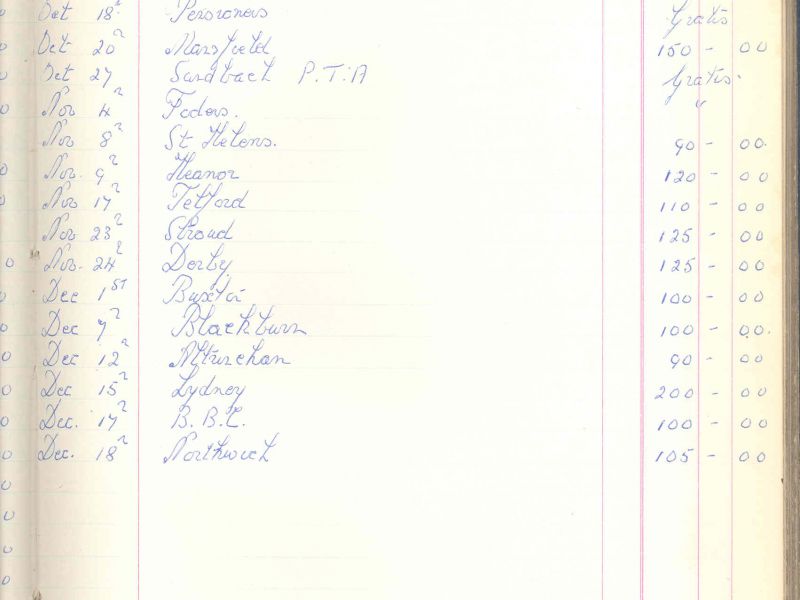 0 Oct 18th Pensioners Gratis
0 Oct 20th Mansfield 150 - 00
0 Oct 27 Sandbach P.T.A Gratis.
0 Nov 4th Fodens. "
Nov 8th St Helens. 90 - 00.
0 Nov. 9th Heanor 120 - 00
0 Nov 17th Telford 110 - 00
Nov 23rd Stroud 125 - 00
0 Nov. 24th Derby 125 - 00
0 Dec 1st Buxton 100 - 00
0 Dec 7th Blackburn 100 - 00.
0 Dec 12th Altrincham 90 - 00
0 Dec 15th Lydney 200 - 00
0 Dec. 17th B.B.C. 100 - 00
0 Dec. 18th Northwich 105 - 00
0
0
0
0